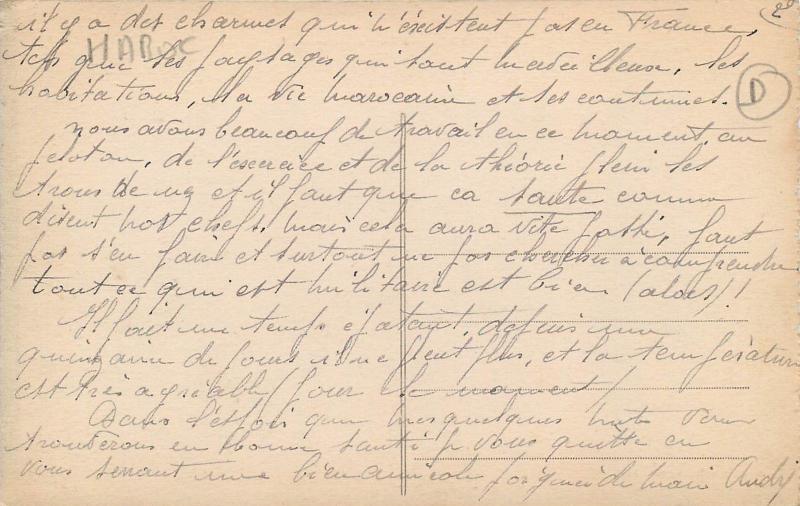 il y a des charmes qui n'éxistent pas en France,
2
MAROC
tels que ses paysages qui sont merveilleux, les
habitations, la vie marocaine et ses coutumes.
D
nous avons beaucoup de travail en ce moment au
peloton, de l'exercice et de la théorie plein les
trous de nez et il faut que ça saute comme
disent nos chefs, mais cela aura vite passé, faut
pas s'en faire et surtout ne pas chercher à comprendre
tout ce qui est militaire est bien (alors)!
Il fait un temps épatant, depuis une
quinzaine de jours il ne pleut plus, et la température
est très agréable (pour le moment)
Dans l'espoir que mes quelques mots vous
trouverons en bonne santé je vous quitte en
vous serrant une bien amicale poignée de main André